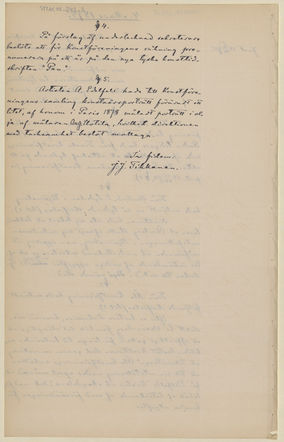 § 4.
På förslag af undertecknad sekreterare
beslöts att för Konstföreningens räkning pre-
numerera på ett ex på den nya tyska konsttid-
skriften "Pan".
§ 5.
Artisten A. Edelfelt hade till Konstföre-
ningens samling konstnärsporträtt förärat ett
litet, af honom i Paris 1878 måladt porträtt i ol-
ja af målaren hvilket direktionen
med tacksamhet beslöt mottaga.
In fidem:
J. J. Tikkanen.